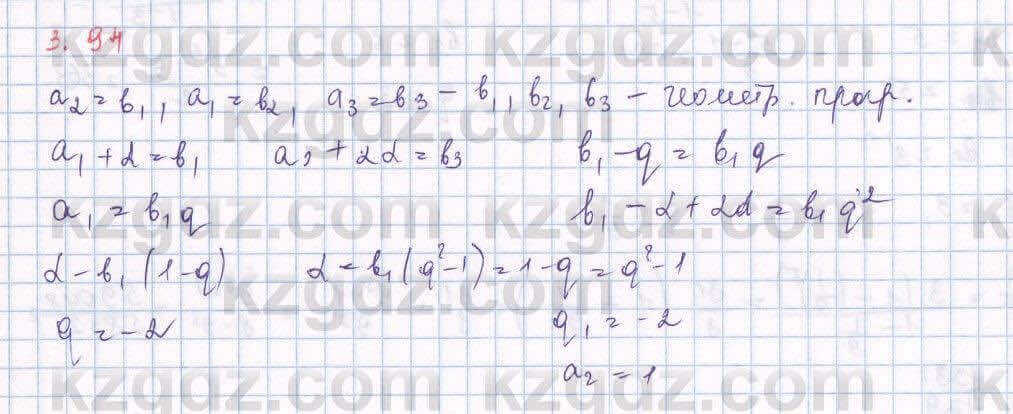 3. 94
a₂ = b₁, a₁ = b₂, a₃ = b₃ – b₁, b₂, b₃ – геометр. прогр.
a₁ + d = b₁   a₁ + 2d = b₃   b₁ – q = b₁ q
a₁ = b₁ q   b₁ – d + 2d = b₁ q²
d – b₁ (1 – q)   d = b₁ (q² – 1) = 1 – q = q² – 1
q = –2   q₁ = –2
a₂ = 1
kzgdz.com
kzgdz.com
kzgdz.com
kzgdz.com